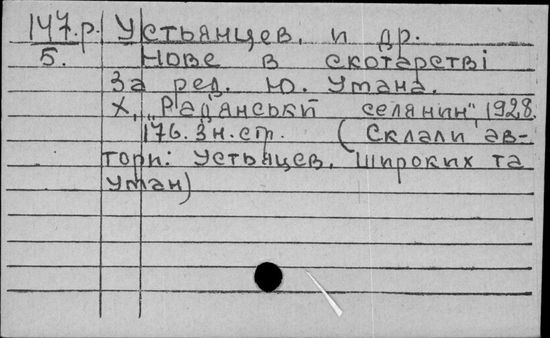 147.р. Устьянцев. и др.
5. Нове в скотарстві
За ред. Ю. Умана.
Х., "Рад'янський селянин" 1928.
176. 3н. ст. (Склали ав-
тори: Устьяцев. Широких та
Уман)